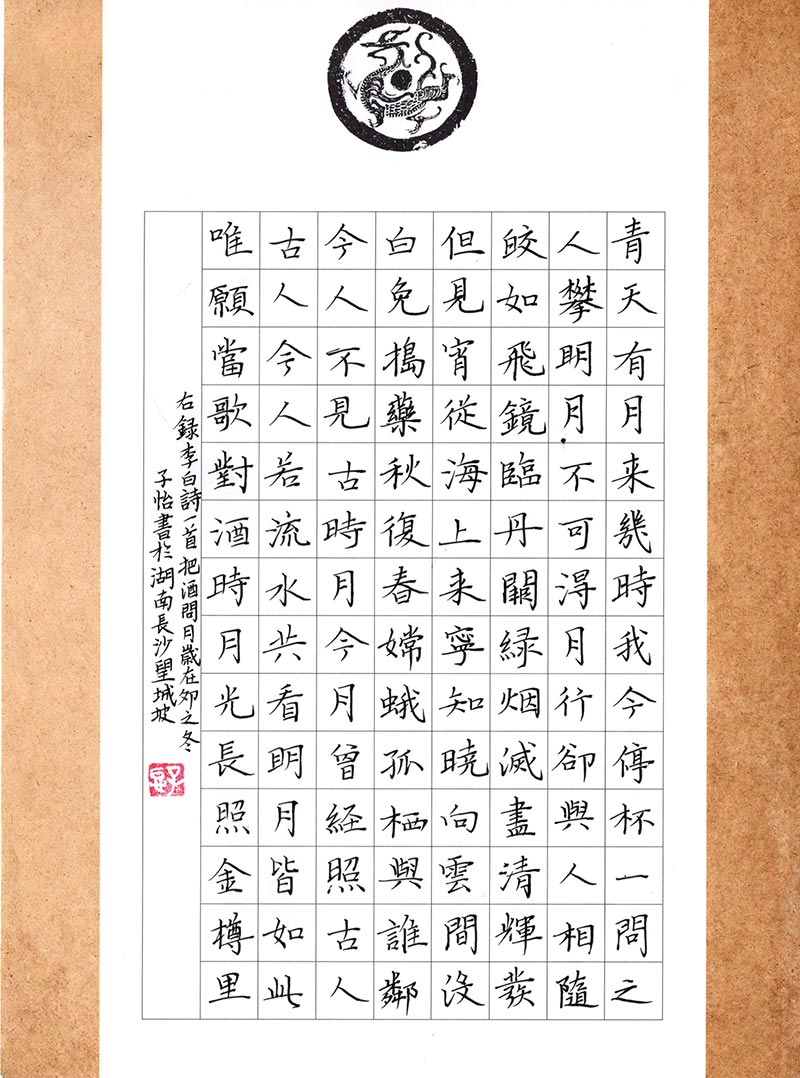 青天有月来幾時我今停杯一問之
人攀明月不可淂月行卻與人相隨
皎如飛鏡臨丹闕緑烟滅盡清輝發
但見宵從海上来寧知曉向雲間没
白兔搗藥秋復春嫦蛾孤栖與誰鄰
今人不見古時月今月曾経照古人
古人今人若流水共看明月皆如此
唯願當歌對酒時月光長照金樽里
右録李白詩一首把酒問月歲在卯之冬
子怡書於湖南長沙望城坡